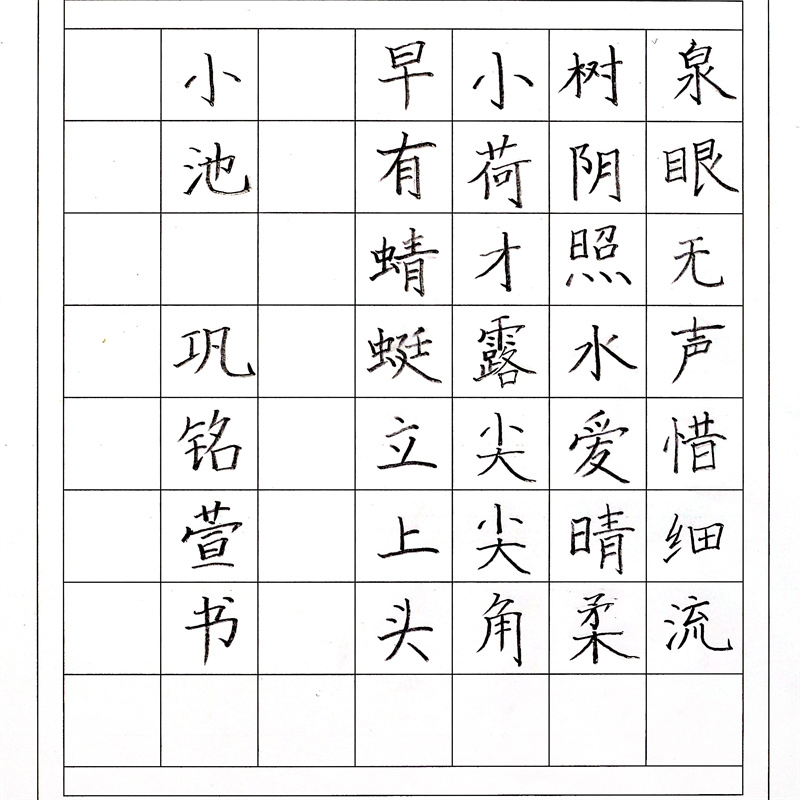 泉眼无声惜细流
树阴照水爱晴柔
小荷才露尖尖角
早有蜻蜓立上头
小池 巩铭萱书